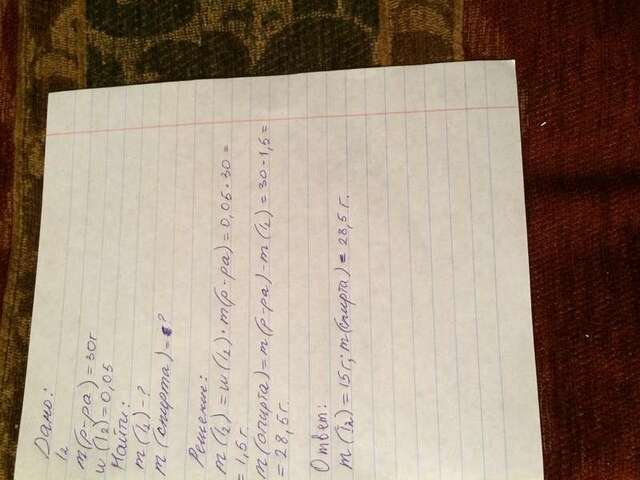 Дано:
I₂
m(р-ра) = 30г
w(I₂) = 0,05
Найти:
m(I₂) - ?
m(спирта) - ?
Решение:
m(I₂) = w(I₂) · m(р-ра) = 0,05 · 30 =
= 1,5г.
m(спирта) = m(р-ра) - m(I₂) = 30 - 1,5 =
= 28,5г.
Ответ:
m(I₂) = 15г; m(спирта) = 28,5г.